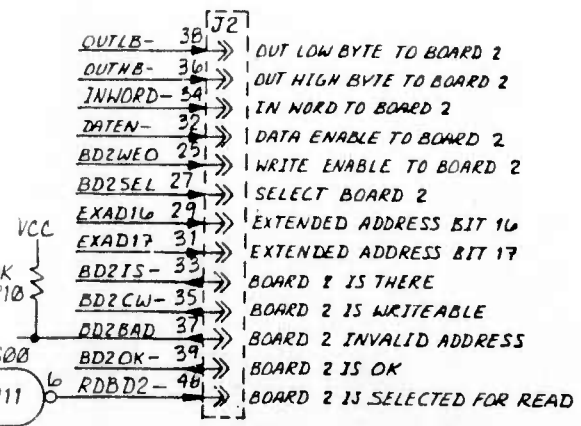 J2
OUTLB- 38 OUT LOW BYTE TO BOARD 2
OUTHB- 36 OUT HIGH BYTE TO BOARD 2
INWORD- 34 IN WORD TO BOARD 2
DATEN- 32 DATA ENABLE TO BOARD 2
BD2WEO 25 WRITE ENABLE TO BOARD 2
BD2SEL 27 SELECT BOARD 2
EXAD16 29 EXTENDED ADDRESS BIT 16
VCC EXAD17 31 EXTENDED ADDRESS BIT 17
K BD2IS- 33 BOARD 2 IS THERE
10 BD2CW- 35 BOARD 2 IS WRITEABLE
BD2BAD 37 BOARD 2 INVALID ADDRESS
S00 BD2OK- 39 BOARD 2 IS OK
11 6 RDBD2- 40 BOARD 2 IS SELECTED FOR READ